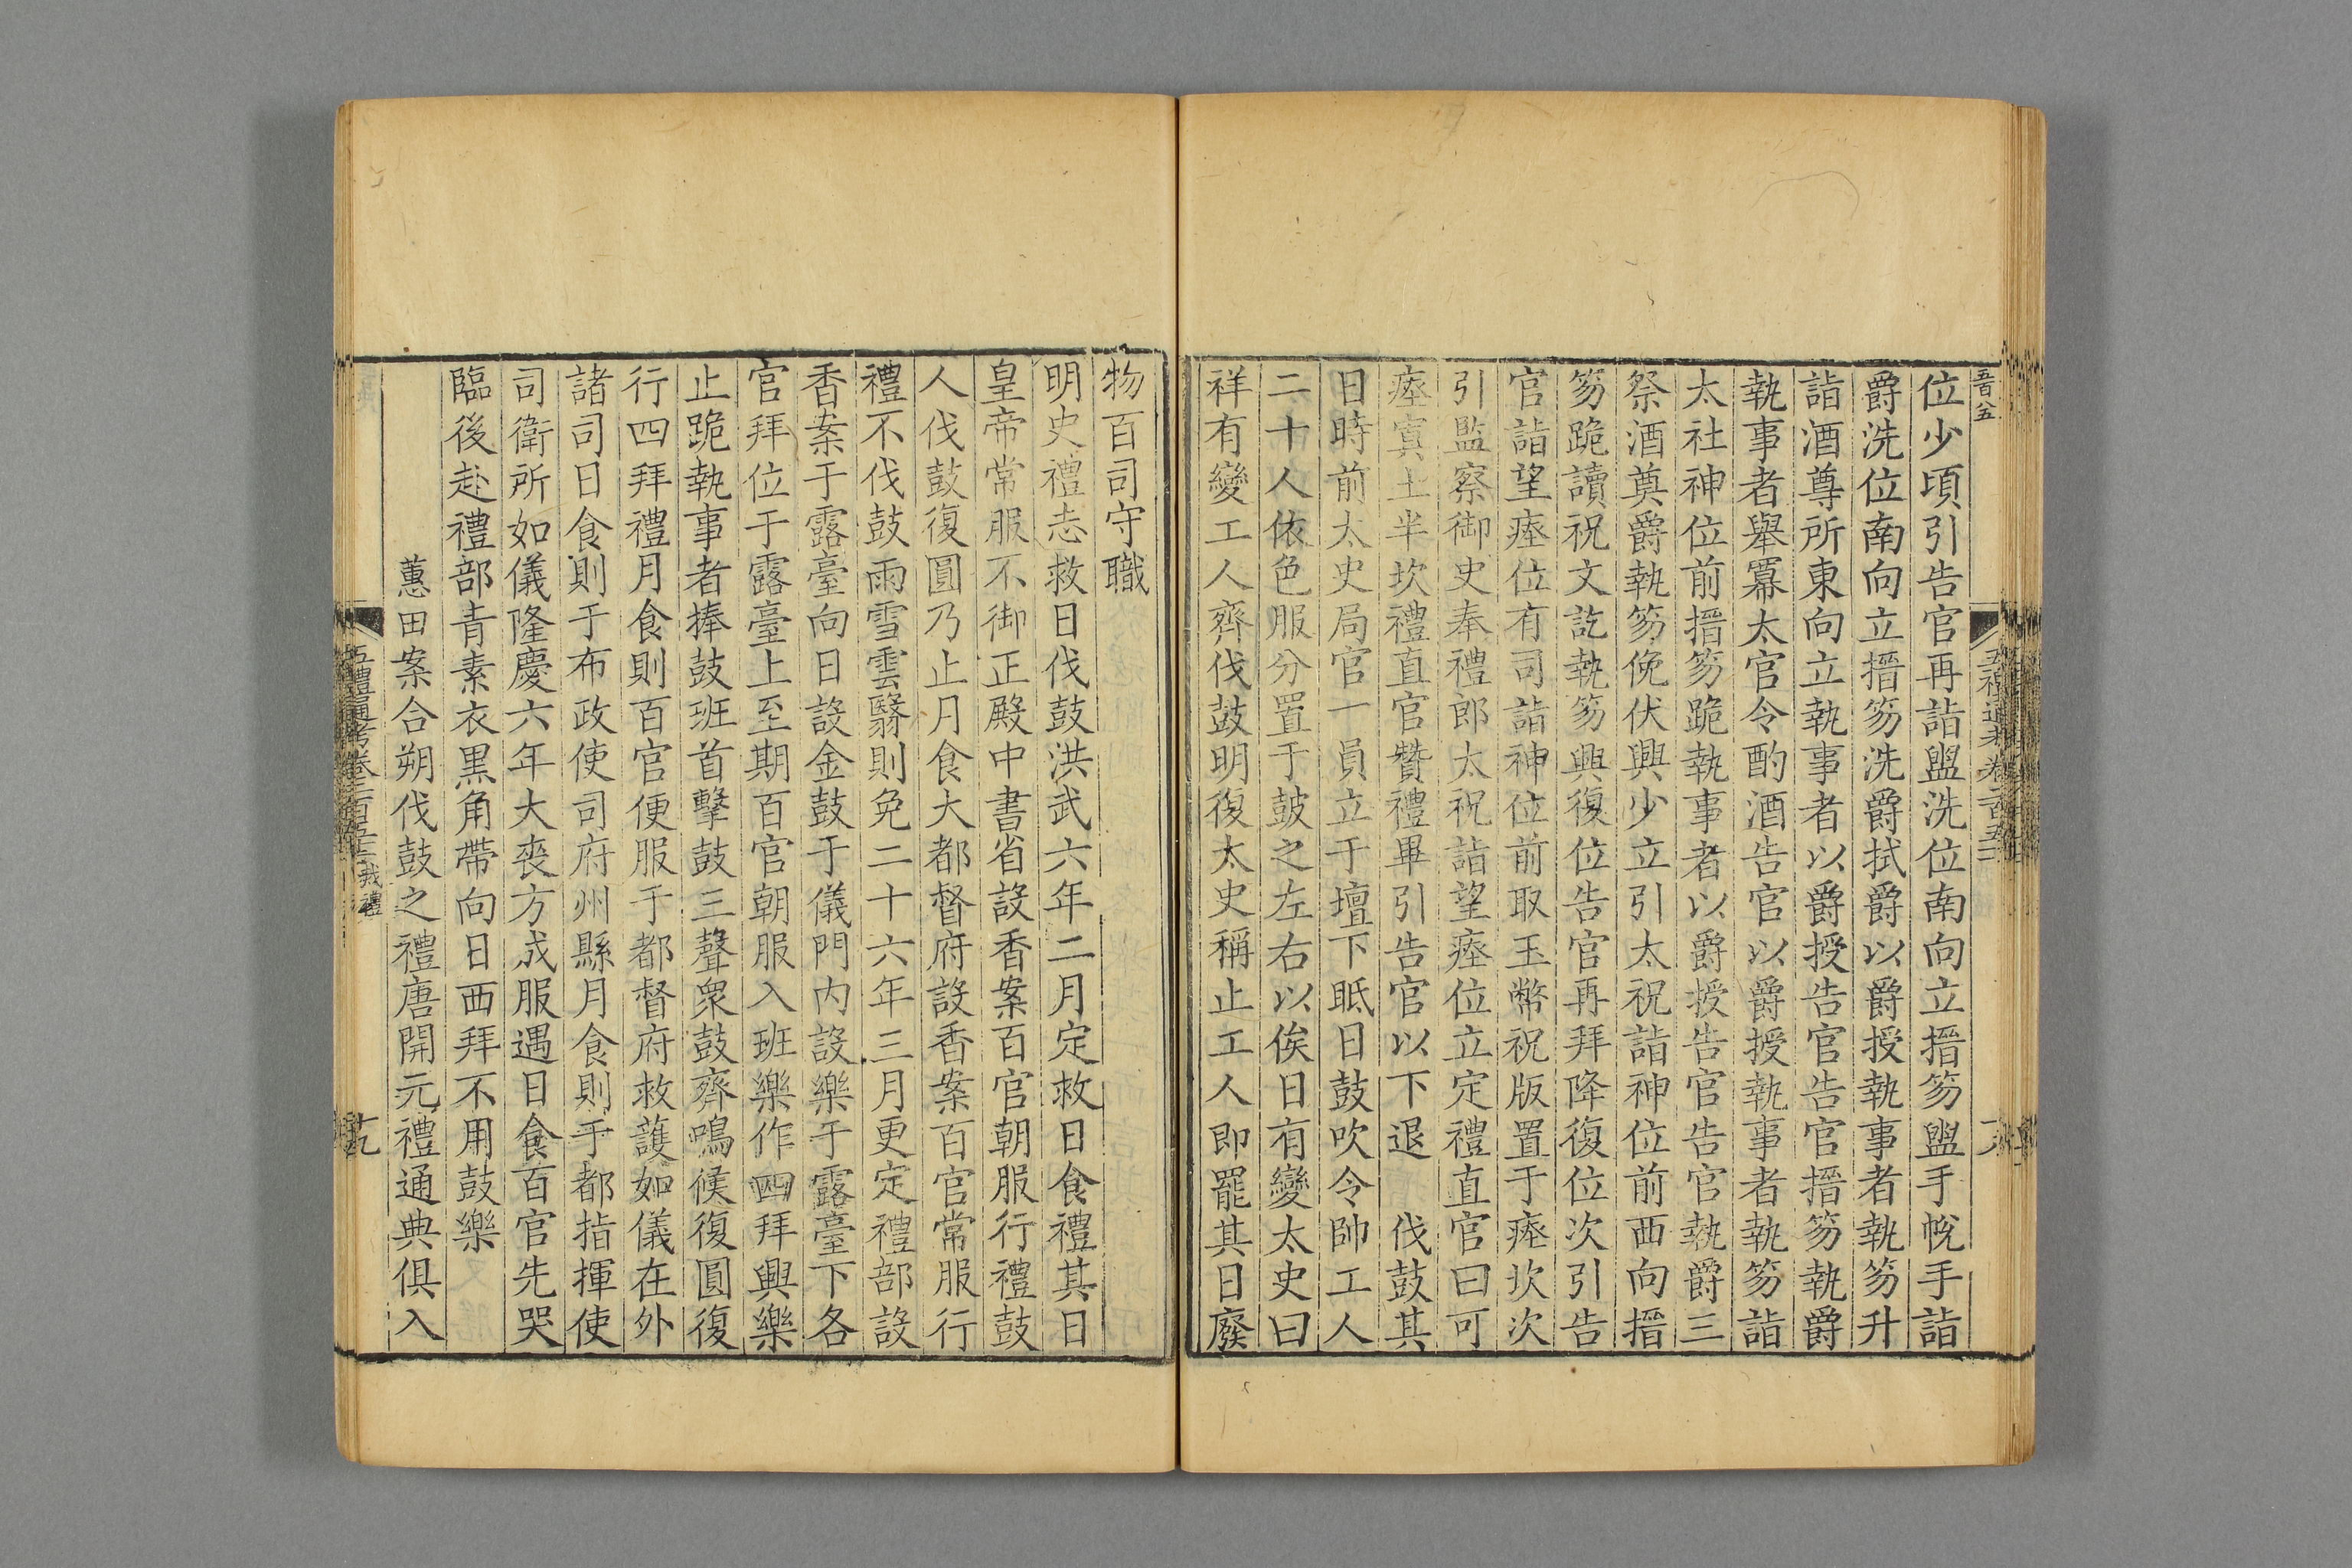 五百八五
位少頃引告官再詣盥洗位南向立搢笏盥手帨手詣
爵洗位南向立搢笏洗爵拭爵以爵授執事者執笏升
詣酒尊所東向立執事者以爵授告官告官搢笏執爵
執事者舉冪太官令酌酒告官以爵授執事者執笏詣
太社神位前搢笏跪執事者以爵授告官告官執爵三
祭酒奠爵執笏俛伏興少立引太祝詣神位前西向搢
笏跪讀祝文訖執笏興復位告官再拜降復位次引告
官詣望瘞位有司詣神位前取玉幣祝版置于瘞坎次
引監察御史奉禮郎太祝詣望瘞位立定禮直官曰可
瘞窴土半坎禮直官贊禮畢引告官以下退 伐鼓其
日時前太史局官一員立于壇下眡日鼓吹令帥工人
二十人依色服分置于鼓之左右以俟日有變太史曰
祥有變工人齊伐鼓明復太史稱止工人即罷其日廢
物百司守職
明史禮志救日伐鼓洪武六年二月定救日食禮其日
皇帝常服不御正殿中書省設香案百官朝服行禮鼓
人伐鼓復圓乃止月食大都督府設香案百官常服行
禮不伐鼓雨雪雲翳則免二十六年三月更定禮部設
香案于露臺向日設金鼓于儀門内設樂于露臺下各
官拜位于露臺上至期百官朝服入班樂作四拜興樂
止跪執事者捧鼓班首擊鼓三聲衆鼓齊鳴候復圓復
行四拜禮月食則百官便服于都督府救護如儀在外
諸司日食則于布政使司府州縣月食則于都指揮使
司衛所如儀隆慶六年大喪方成服遇日食百官先哭
臨後赴禮部青素衣黑角帶向日西拜不用鼓樂
蕙田案合朔伐鼓之禮唐開元禮通典俱入
五禮通考卷二百五十二 我禮 十九